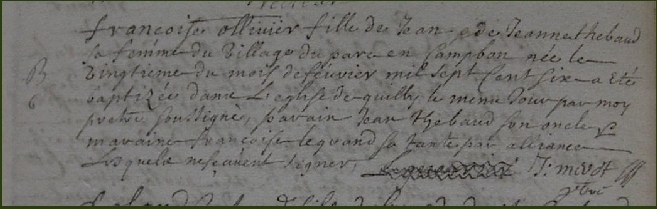 francoise ollivier fille de Jean & de Jeanne thebaud
sa femme du village du parc en Campbon née le
B vingtieme du mois de feuvrier mil sept cent six a eté
6 baptizée dans l'eglise de quilly le meme Jour par moy
pretre soussigné, parain Jean thebaud son oncle &
maraine francoise legrand sa tante par aliance
lesquels ne scavent signer,
ptre